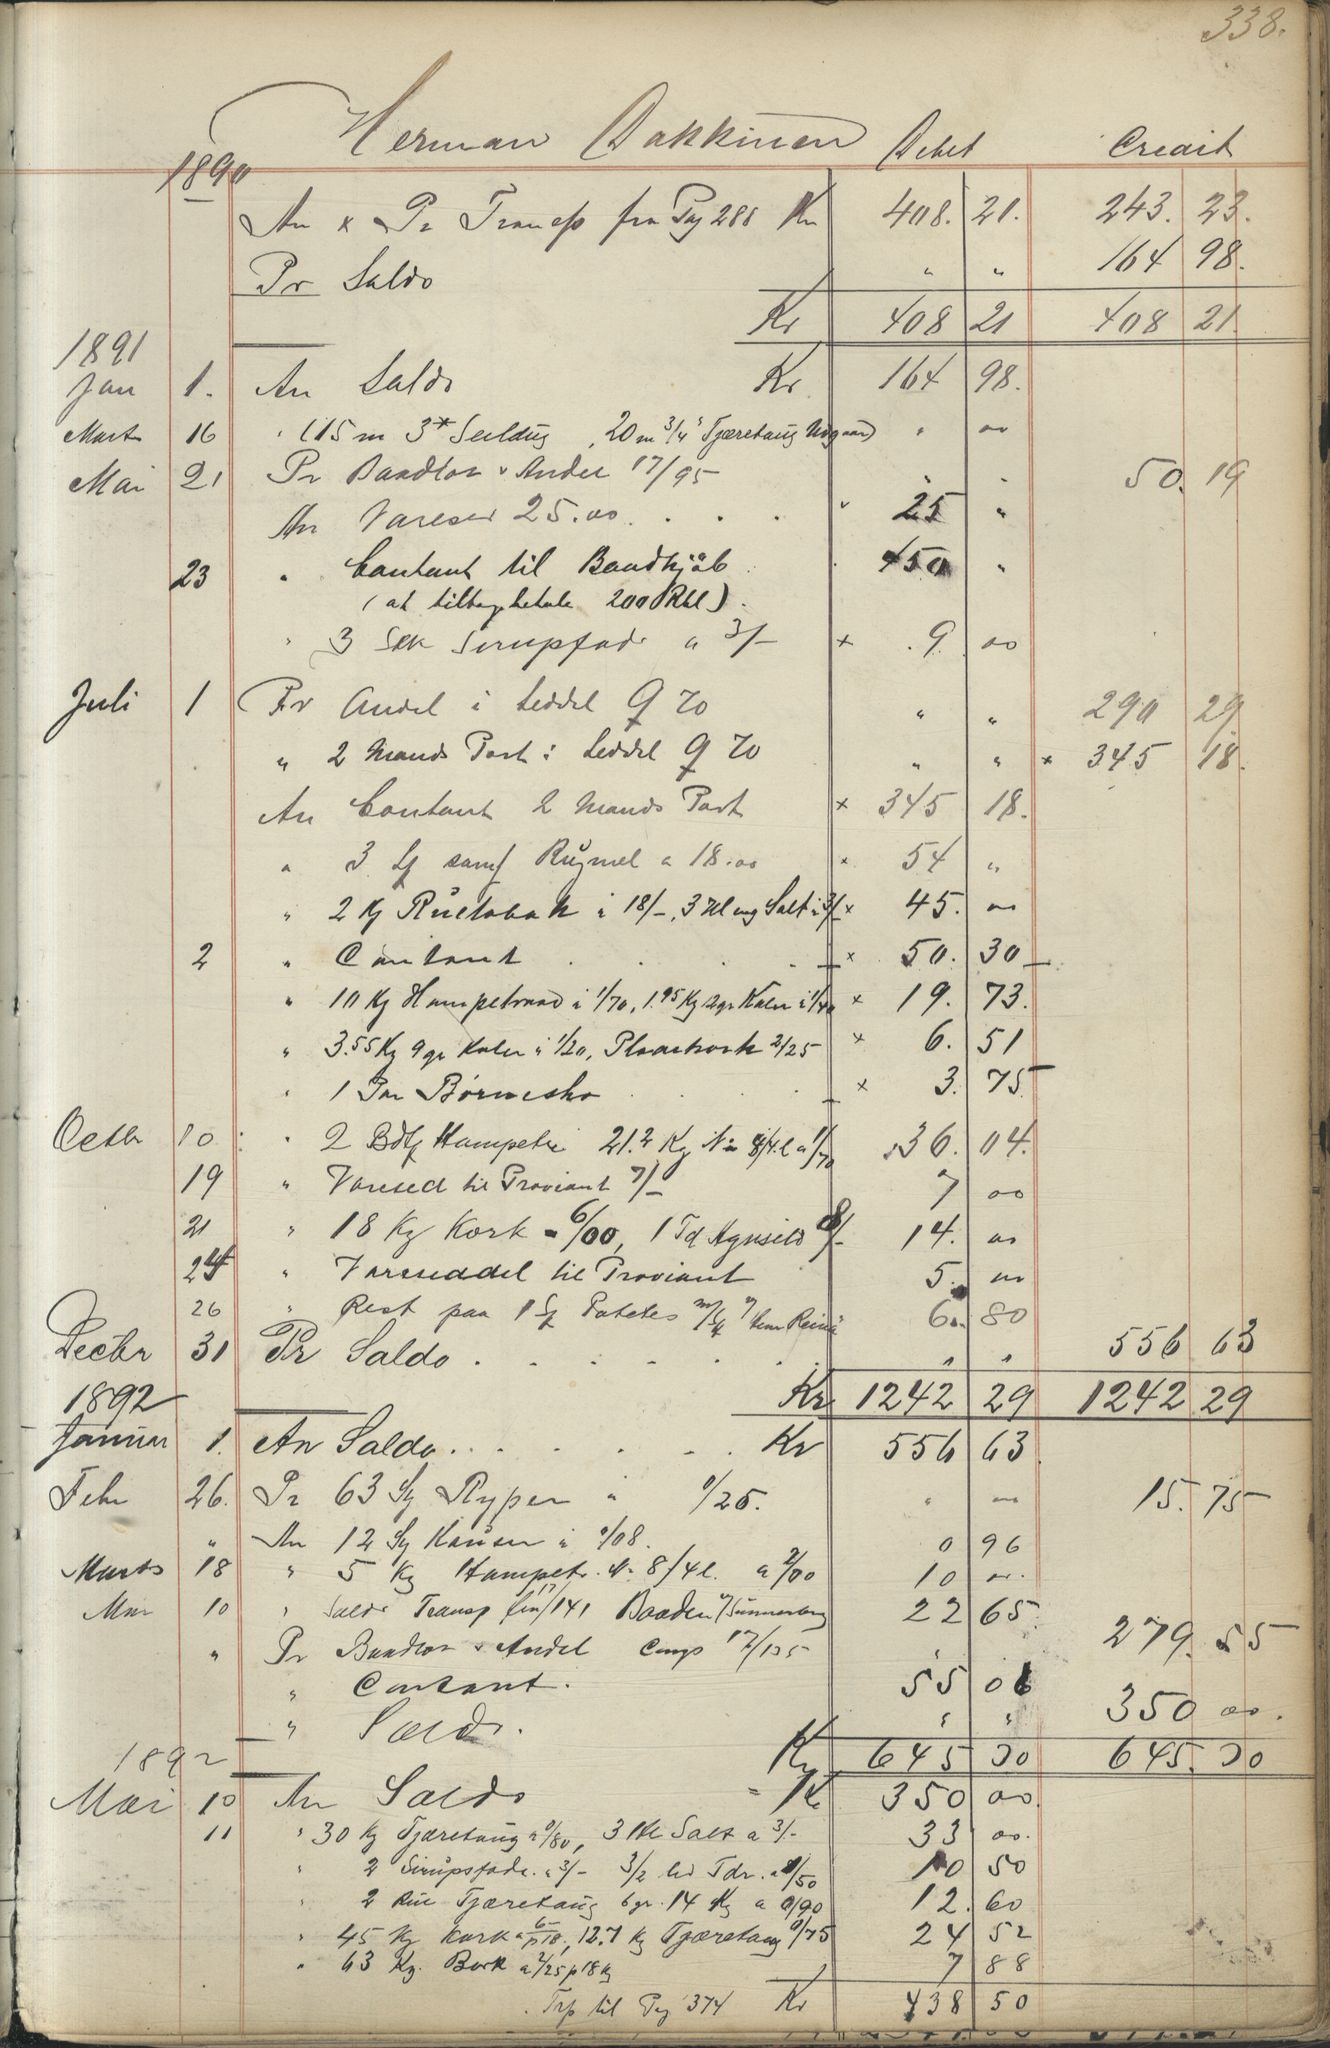 338.
Herman Bakkinen Debet Credit
1890
An & Pr Transp fra Pag 288 Kr 408. 21. 243. 23.
Pr Saldo " " 164 98.
Kr 408 21 408 21.
1891
Jan 1. An Saldo Kr 164 98.
Marts 16 " (15 m 3* Seildug, 20 m 3/4" Tjæretaug " oo
Mai 21 Pr Baadlot & Andel 17/95 " " 50. 19
An Varesed 25.oo . . . " 25 "
23 " Contant til Baadkjøb . 450 "
(at tilbagebetale 200 Rbl).
" 3 Stk Sirupfade a 3/– x 9 oo
Juli 1 Pr Andel i Seddel 9 70 " " 290 29
" 2 Mands Part i Seddel 9 70 " " x 345 18.
An Contant 2 Mands Part x 345 18.
" 3 Rugmel a 18.oo x 54 "
" 2 Kg a 18/–, 3 Hl Salt a 3/– x 45. oo
2 " Contant . . . x 50. 30
" 10 Kg a 1/70, 1.95 Kg 2gr Kaler a 1/40 x 19. 73.
" 3.55 Kg 9 gr Kaler a 1/20, 2/25 x 6. 51
" 1 Par Børnesko . . . x 3. 75
Octbr 10 " 2 21.2 Kg No 8/4 l a 1/70 36. 04.
19 " Varesed til Proviant 7/– 7 oo
21 " 18 Kg Kork a 6/00, 1 Td Agnsild 8/– 14. oo
24 " Vareseddel til Proviant 5. oo
26 " Rest paa 1 Potetes 6. 80
Decbr 31 Pr Saldo . . . . . . " " 556 63
1892 Kr 1242 29 1242 29
Januar 1. An Saldo . . . . . . Kr 556 63
Febr 26. Pr 63 St Ryper a 0/25. " " 15. 75
" An 12 St Kauser a 0/08. 0 96
Marts 18 " 5 Kg Hampetr. No 8/4 l. a 2/00 10 oo.
Mai 10 " Saldo Transp fra 17/141 Baaden 22 65
" Pr Baadlot & Andel 17/135 " 279. 55
" Contant. 55 06
" Saldo. " " 350 oo.
1892 Kr 645 30 645. 30
Mai 10 An Saldo " Kr 350 oo.
11 " 30 Kg Tjæretaug a 0/80, 3 Hl Salt a 3/– 33 oo.
" 2 Sirupsfade a 3/– 3/2 Tdr. a 1/50 10 50
" 2 Tjæretaug 6 gr. 14 Kg a 0/90 12. 60
" 45 Kg Kork a 6/– p 18, 12.7 Kg Tjæretaug 0/75 24 52
" 63 Kg. Bark a 2/25 p 18 Kg 7 88
Trp til Pag 374 Kr 438 50